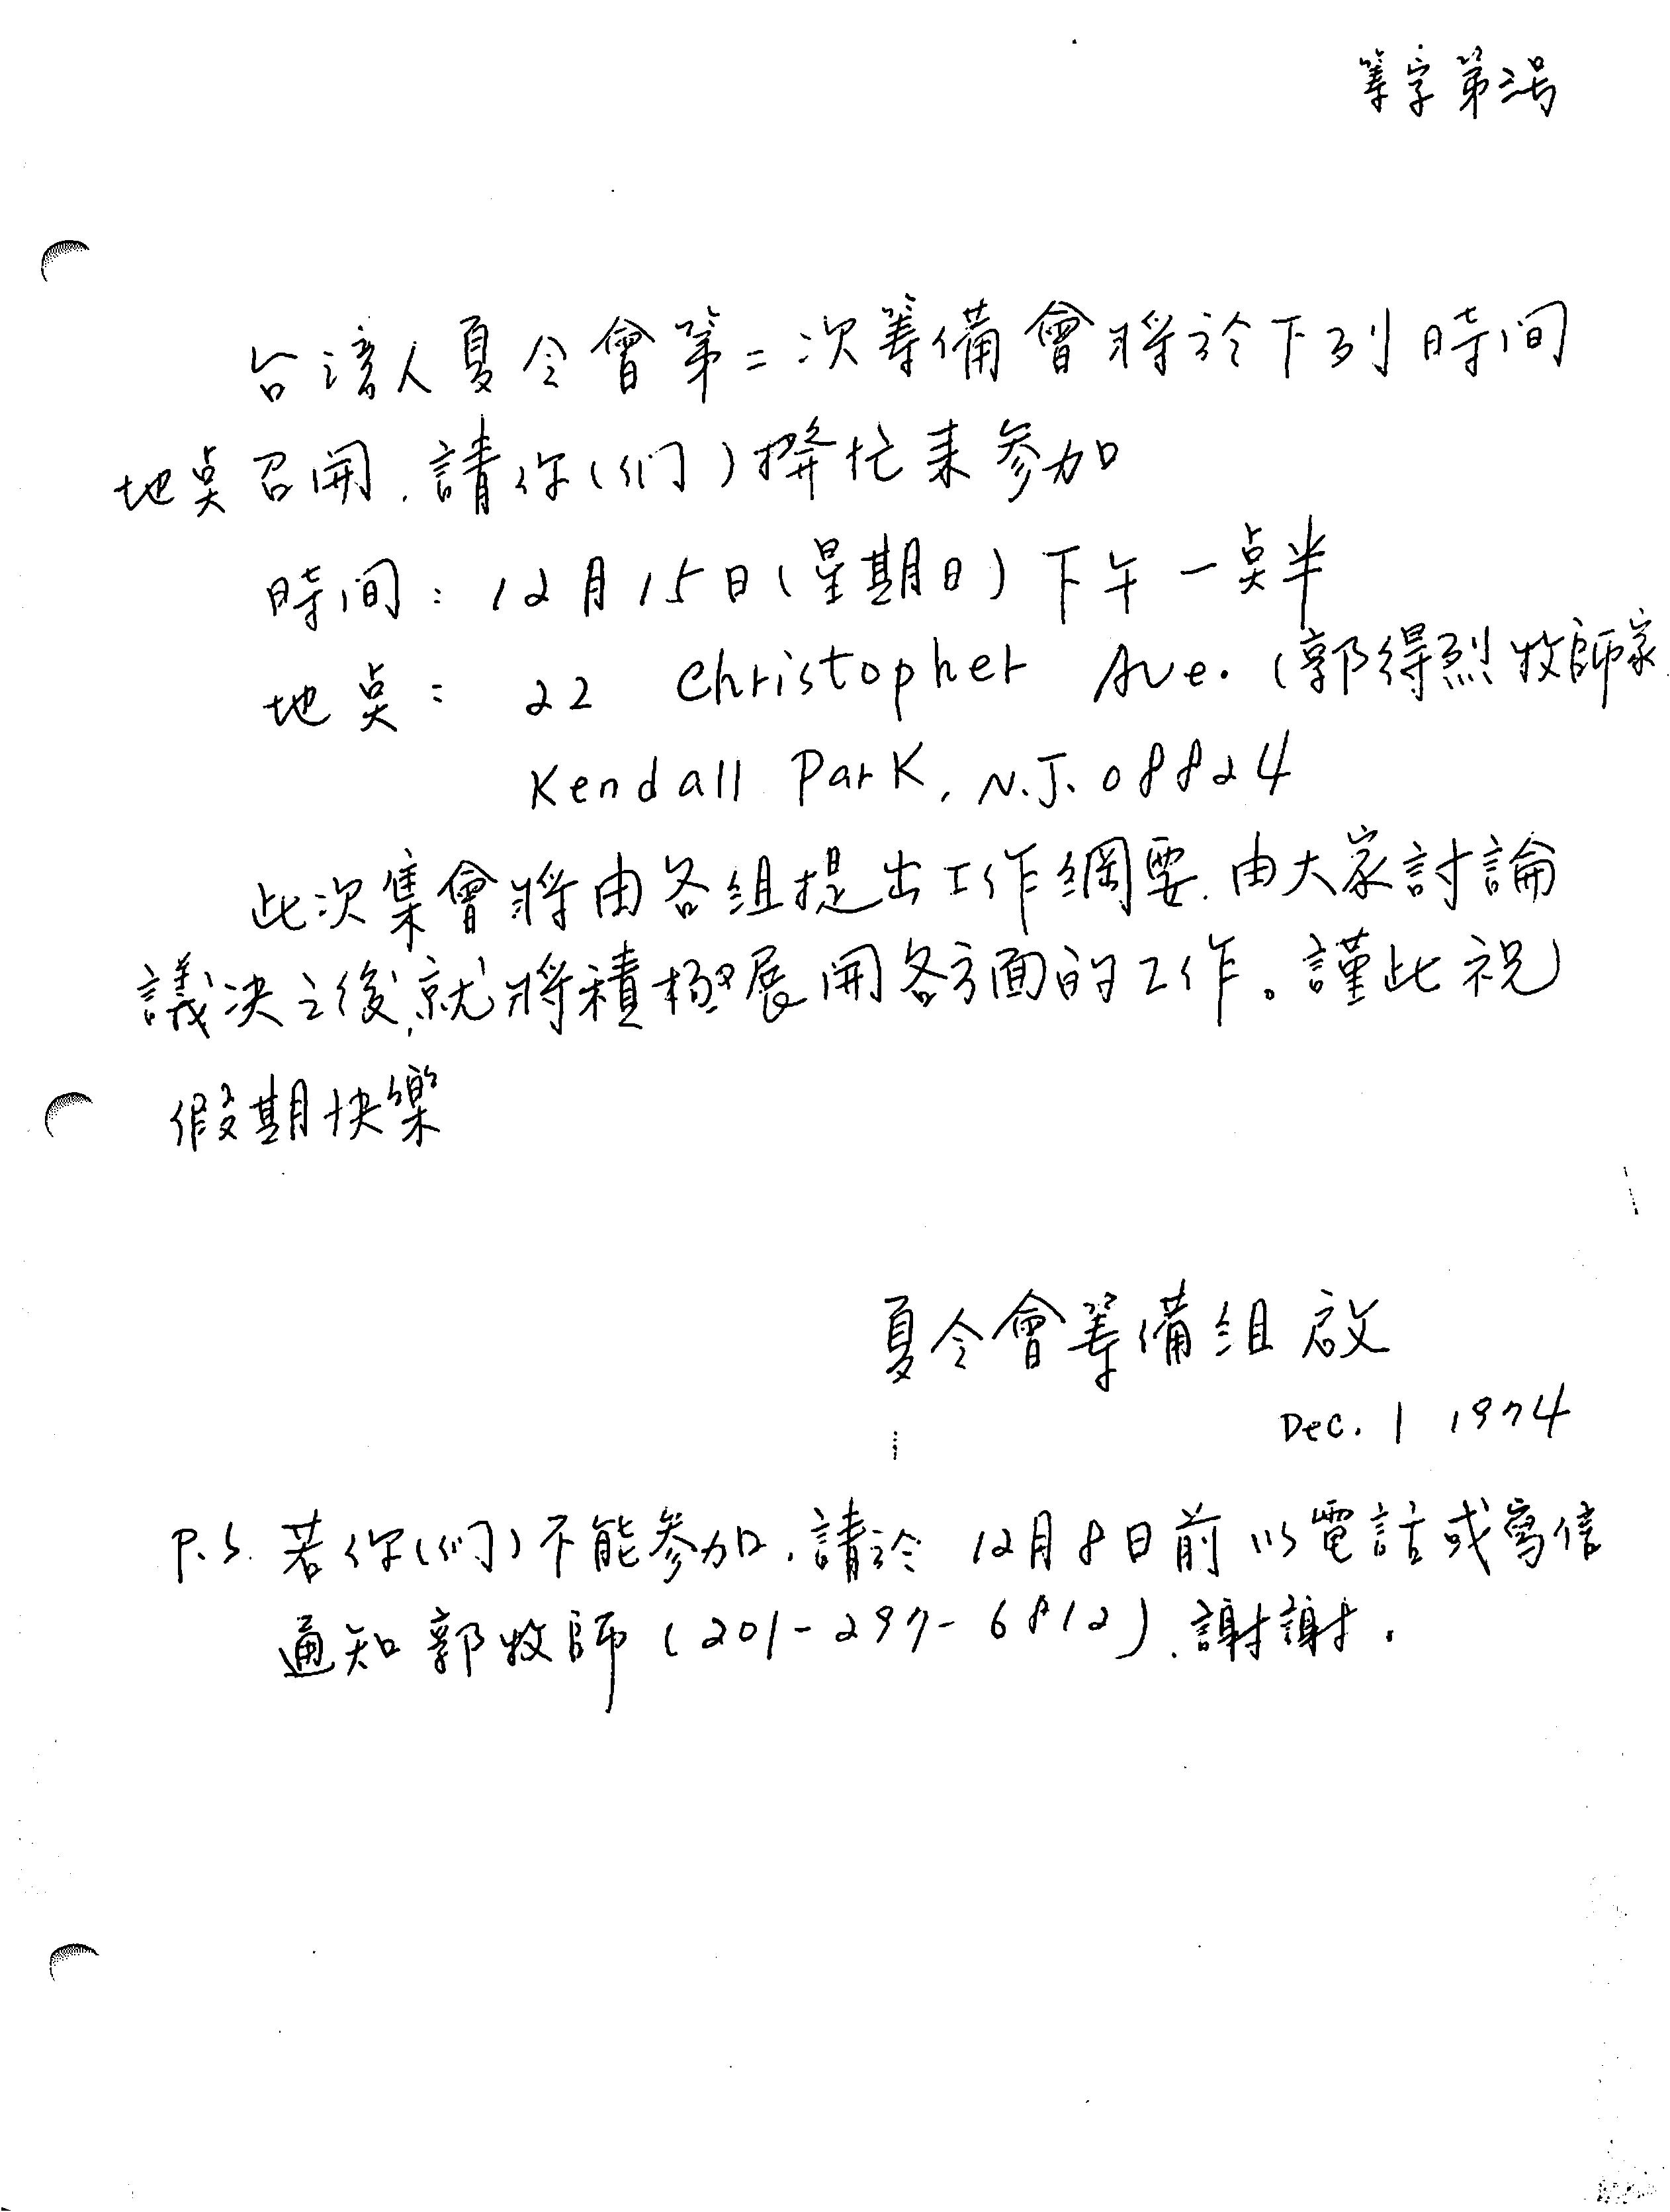 筹字第三号
台湾人夏令會第二次筹備會将於下列時间
地奌召開.請你(们)撥忙来参加
時间:12月15日(星期日)下午一奌半
地奌:22 Christopher Ave.(郭得烈牧師家
Kendall Park, N.J. 08824
此次集會将由各组提出工作綱要.由大家討論
議决之後,就将積極展開各方面的工作。謹此祝
假期快樂
夏令會筹備组啟
Dec. 1 1974
P.S. 若你(们)不能参加.請於12月8日前以電話或寫信
通知郭牧師(201-297-6812).謝謝.